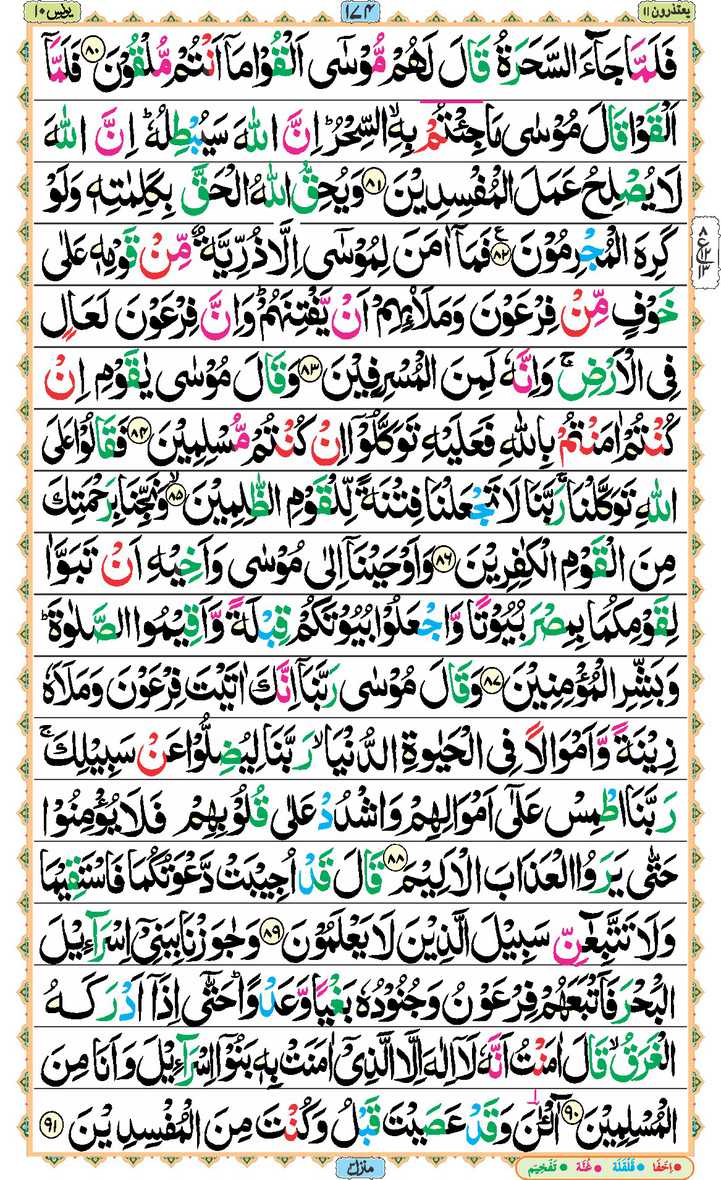 یعتذرون ۱۱
۱۷۴
یونس ۱۰
فَلَمَّا جَآءَ السَّحَرَةُ قَالَ لَهُمْ مُّوْسٰۤى اَلْقُوْا مَاۤ اَنْتُمْ مُّلْقُوْنَ ۝۸۰ فَلَمَّاۤ
اَلْقَوْا قَالَ مُوْسٰى مَا جِئْتُمْ بِهِ ۙ السِّحْرُ ؕ اِنَّ اللّٰهَ سَيُبْطِلُهٗ ؕ اِنَّ اللّٰهَ
لَا يُصْلِحُ عَمَلَ الْمُفْسِدِيْنَ ۝۸۱ وَيُحِقُّ اللّٰهُ الْحَقَّ بِكَلِمٰتِهٖ وَلَوْ
كَرِهَ الْمُجْرِمُوْنَ ۝۸۲ فَمَاۤ اٰمَنَ لِمُوْسٰۤى اِلَّا ذُرِّيَّةٌ مِّنْ قَوْمِهٖ عَلٰى
خَوْفٍ مِّنْ فِرْعَوْنَ وَمَلَا۟ئِهِمْ اَنْ يَّفْتِنَهُمْ ؕ وَاِنَّ فِرْعَوْنَ لَعَالٍ
فِى الْاَرْضِ ۚ وَاِنَّهٗ لَمِنَ الْمُسْرِفِيْنَ ۝۸۳ وَقَالَ مُوْسٰى يٰقَوْمِ اِنْ
كُنْتُمْ اٰمَنْتُمْ بِاللّٰهِ فَعَلَيْهِ تَوَكَّلُوْۤا اِنْ كُنْتُمْ مُّسْلِمِيْنَ ۝۸۴ فَقَالُوْا عَلَى
اللّٰهِ تَوَكَّلْنَا ۚ رَبَّنَا لَا تَجْعَلْنَا فِتْنَةً لِّلْقَوْمِ الظّٰلِمِيْنَ ۙ۝۸۵ وَنَجِّنَا بِرَحْمَتِكَ
مِنَ الْقَوْمِ الْكٰفِرِيْنَ ۝۸۶ وَاَوْحَيْنَاۤ اِلٰى مُوْسٰى وَاَخِيْهِ اَنْ تَبَوَّاٰ
لِقَوْمِكُمَا بِمِصْرَ بُيُوْتًا وَّاجْعَلُوْا بُيُوْتَكُمْ قِبْلَةً وَّاَقِيْمُوا الصَّلٰوةَ ؕ
وَبَشِّرِ الْمُؤْمِنِيْنَ ۝۸۷ وَقَالَ مُوْسٰى رَبَّنَاۤ اِنَّكَ اٰتَيْتَ فِرْعَوْنَ وَمَلَاَهٗ
زِيْنَةً وَّاَمْوَالًا فِى الْحَيٰوةِ الدُّنْيَا ۙ رَبَّنَا لِيُضِلُّوْا عَنْ سَبِيْلِكَ ۚ
رَبَّنَا اطْمِسْ عَلٰۤى اَمْوَالِهِمْ وَاشْدُدْ عَلٰى قُلُوْبِهِمْ فَلَا يُؤْمِنُوْا
حَتّٰى يَرَوُا الْعَذَابَ الْاَلِيْمَ ۝۸۸ قَالَ قَدْ اُجِيْبَتْ دَّعْوَتُكُمَا فَاسْتَقِيْمَا
وَلَا تَتَّبِعٰٓنِّ سَبِيْلَ الَّذِيْنَ لَا يَعْلَمُوْنَ ۝۸۹ وَجٰوَزْنَا بِبَنِىْۤ اِسْرَآءِيْلَ
الْبَحْرَ فَاَتْبَعَهُمْ فِرْعَوْنُ وَجُنُوْدُهٗ بَغْيًا وَّعَدْوًا ؕ حَتّٰۤى اِذَاۤ اَدْرَكَهُ
الْغَرَقُ ۙ قَالَ اٰمَنْتُ اَنَّهٗ لَاۤ اِلٰهَ اِلَّا الَّذِىْۤ اٰمَنَتْ بِهٖ بَنُوْۤا اِسْرَآءِيْلَ وَاَنَا مِنَ
الْمُسْلِمِيْنَ ۝۹۰ آٰلْـٰٔنَ وَقَدْ عَصَيْتَ قَبْلُ وَكُنْتَ مِنَ الْمُفْسِدِيْنَ ۝۹۱
۸
ع
۱۲
۱۳
اِخْفَا قَلْقَلَة غُنَّة تَفْخِيْم